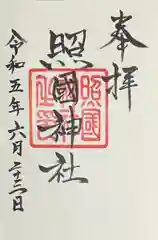 奉拝
照國神社
令和五年六月二十三日